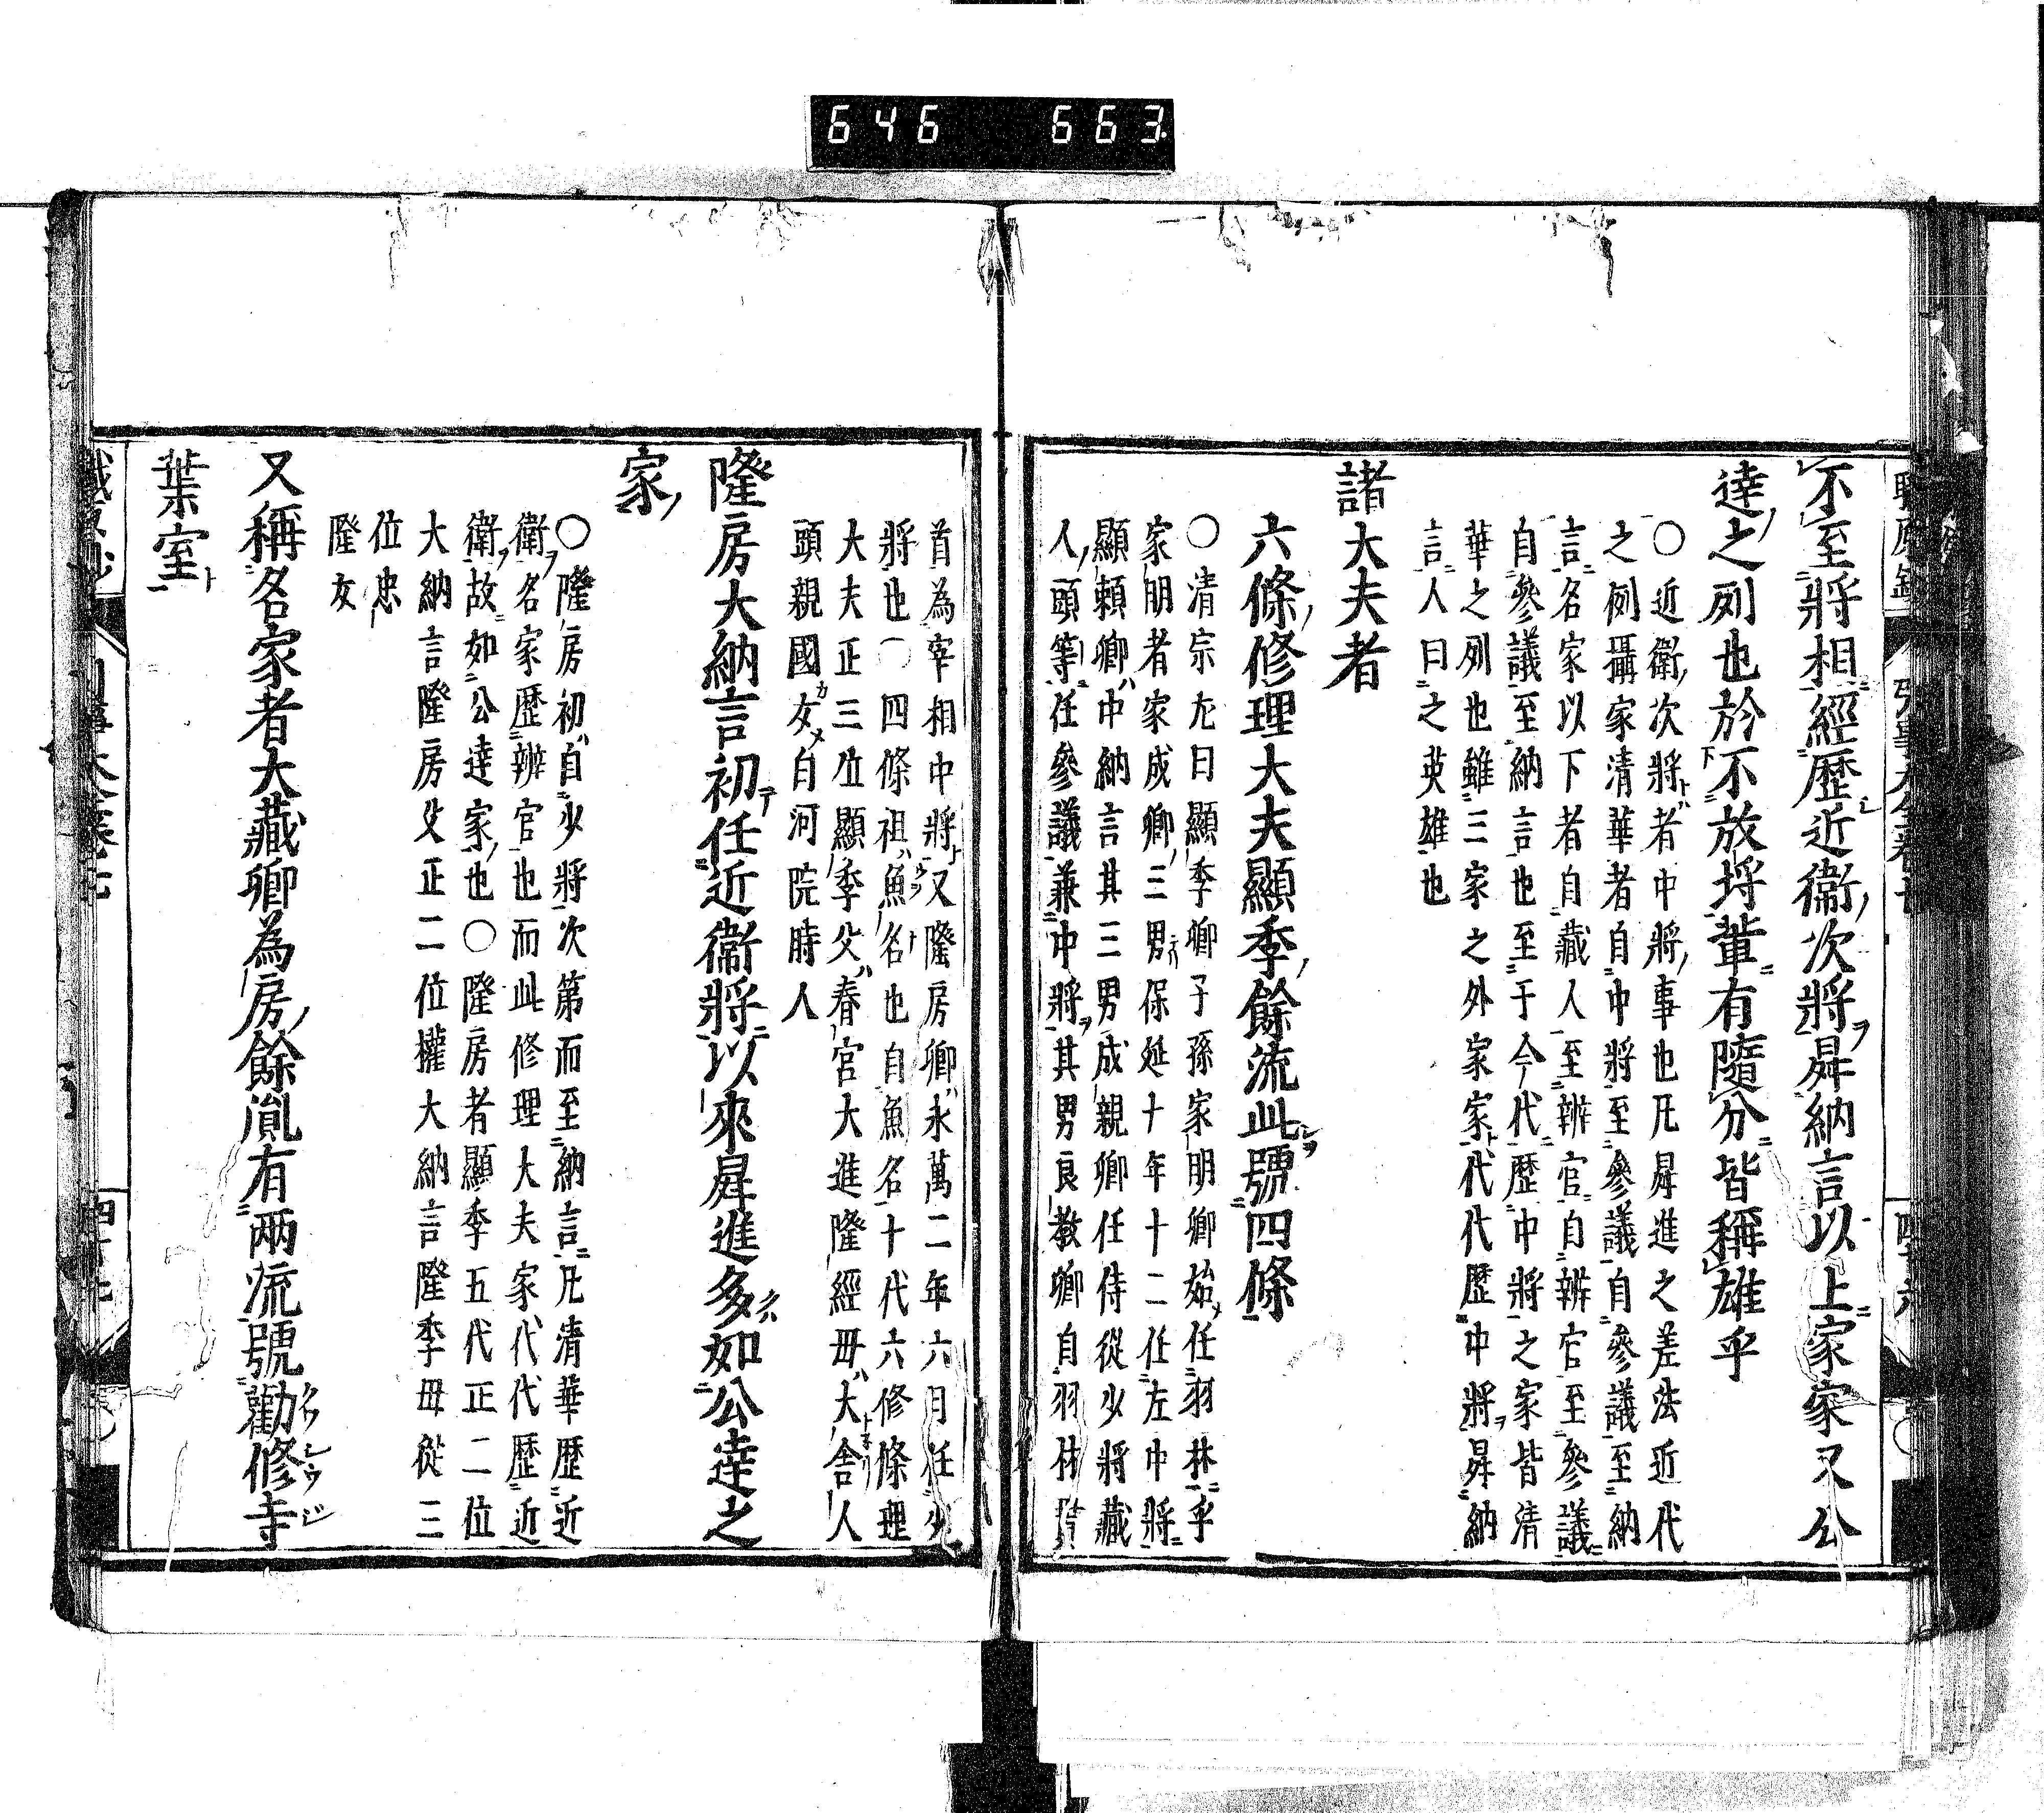 646 663
不至將相經歴近衞次將昇納言以上家家又公
達之列也於不放埒輩有隨分皆稱雄乎
○近衞次將者中將事也凡昇進之差法近代
之例攝家清華者自中將至參議自參議至納
言名家以下者自藏人至辨官自辨官至參議
自參議至納言也至于今代歴中將之家皆清
華之列也雖三家之外家家代代歴中將昇納
言人曰之英雄也
諸大夫者
六條修理大夫顯季餘流此號四條
○清宗尤曰顯季卿子孫家明卿始任羽林乎
家朋者家成卿三男保延十年十二任左中將
顯頼卿中納言其三男成親卿任侍從少將藏
人頭等任參議兼中將其男良教卿自羽林
首為宰相中將又隆房卿永萬二年六月任少
將也○四條祖魚名也自魚名十代六修條理
大夫正三位顯季父春宮大進隆經毋大舎人
頭親國女白河院時人
隆房大納言初任近衞將以來昇進多如公達之
家
○隆房初自少將次第而至納言凡清華歴近
衞名家歴辨官也而此修理大夫家代代歴近
衞故如公達家也○隆房者顯季五代正二位
大納言隆房父正二位權大納言隆季毋從三
位忠
隆女
又稱名家者大藏卿為房餘胤有兩流號勸修寺
葉室